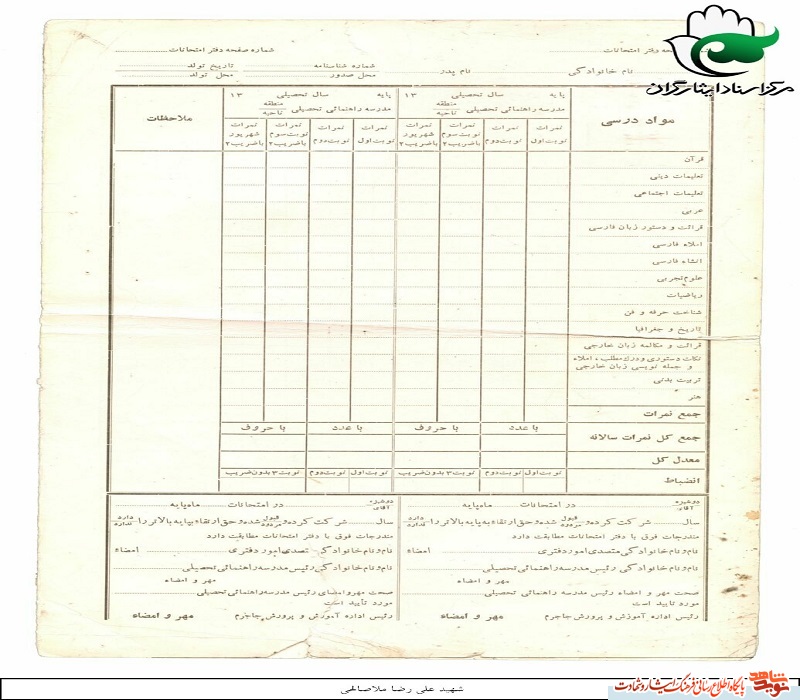 مرکز اسناد ایثارگران
شماره صفحه دفتر امتحانات
صفحه دفتر امتحانات
نام خانوادگی
نام پدر
شماره شناسنامه
محل صدور
تاریخ تولد
محل تولد
مواد درسی
پایه سال تحصیلی ۱۳
مدرسه راهنمائی تحصیلی منطقه ناحیه
نمرات نوبت اول
نمرات نوبت دوم
نمرات نوبت سوم باضریب ۲
نمرات شهریور باضریب ۲
پایه سال تحصیلی ۱۳
مدرسه راهنمائی تحصیلی منطقه ناحیه
نمرات نوبت اول
نمرات نوبت دوم
نمرات نوبت سوم باضریب ۲
نمرات شهریور باضریب ۲
ملاحظات
قرآن
تعلیمات دینی
تعلیمات اجتماعی
عربی
قرائت و دستور زبان فارسی
املاء فارسی
انشاء فارسی
علوم تجربی
ریاضیات
شناخت حرفه و فن
تاریخ و جغرافیا
قرائت و مکالمه زبان خارجی
نکات دستوری و درک مطلب، املاء
و جمله نویسی زبان خارجی
تربیت بدنی
هنر
جمع نمرات
با عدد با حروف با عدد با حروف
جمع کل نمرات سالانه
معدل کل
انضباط
نوبت اول نوبت دوم نوبت ۳ بدون ضریب نوبت اول نوبت دوم نوبت ۳ بدون ضریب
دوشیزه
آقای
در امتحانات ماه پایه
سال شرکت کرده و قبول مردود شده و حق ارتقاء به پایه بالاتر را دارد ندارد
مندرجات فوق با دفتر امتحانات مطابقت دارد
نام و نام خانوادگی متصدی امور دفتری امضاء
نام و نام خانوادگی رئیس مدرسه راهنمائی تحصیلی
مهر و امضاء
صحت مهر و امضاء رئیس مدرسه راهنمائی تحصیلی
مورد تأیید است
رئیس اداره آموزش و پرورش جاجرم مهر و امضاء
دوشیزه
آقای
در امتحانات ماه پایه
سال شرکت کرده و قبول مردود شده و حق ارتقاء به پایه بالاتر را دارد ندارد
مندرجات فوق با دفتر امتحانات مطابقت دارد
نام و نام خانوادگی تصدی امور دفتری امضاء
نام و نام خانوادگی رئیس مدرسه راهنمائی تحصیلی
مهر و امضاء
صحت مهر و امضای رئیس مدرسه راهنمائی تحصیلی
مورد تأیید است
رئیس اداره آموزش و پرورش جاجرم مهر و امضاء
شهید علی رضا ملاصالحی
نوید شاهد
پایگاه اطلاع رسانی فرهنگ ایثار و شهادت